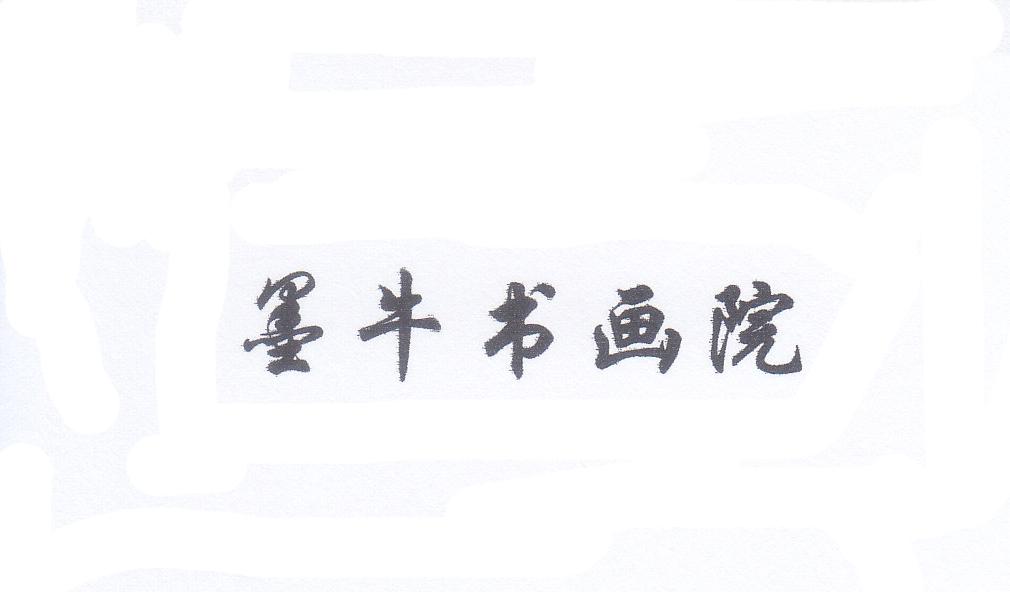 墨牛书画院